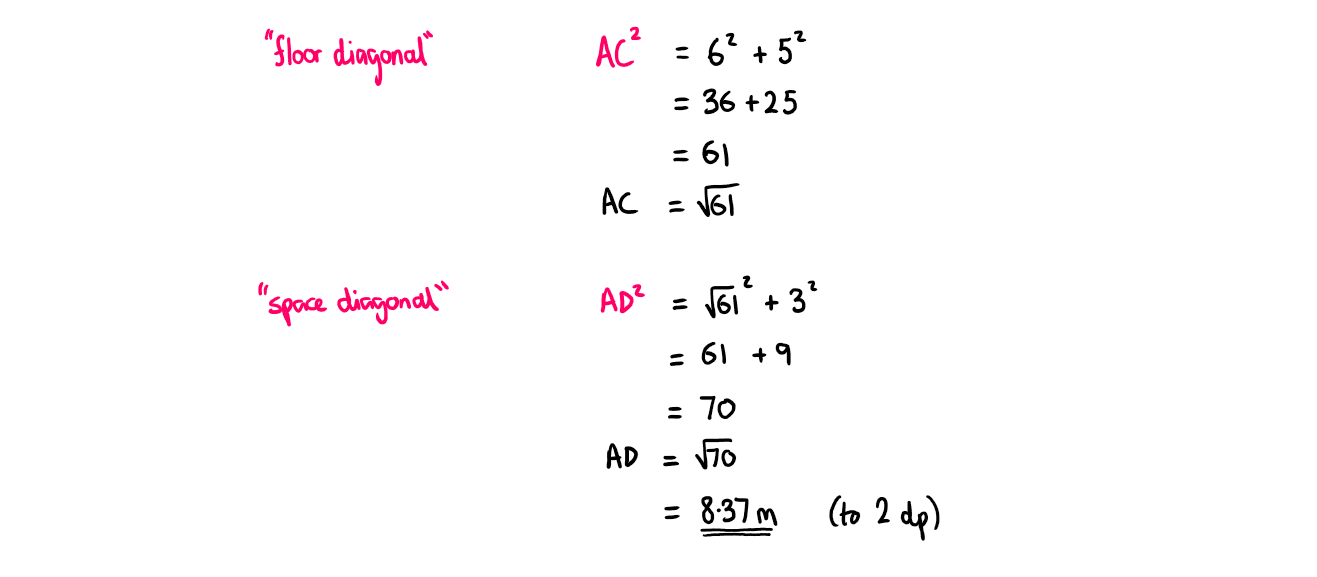 "floor diagonal" AC² = 6² + 5²
= 36 + 25
= 61
AC = √61
"space diagonal" AD² = √61² + 3²
= 61 + 9
= 70
AD = √70
= 8·37 m (to 2 dp)